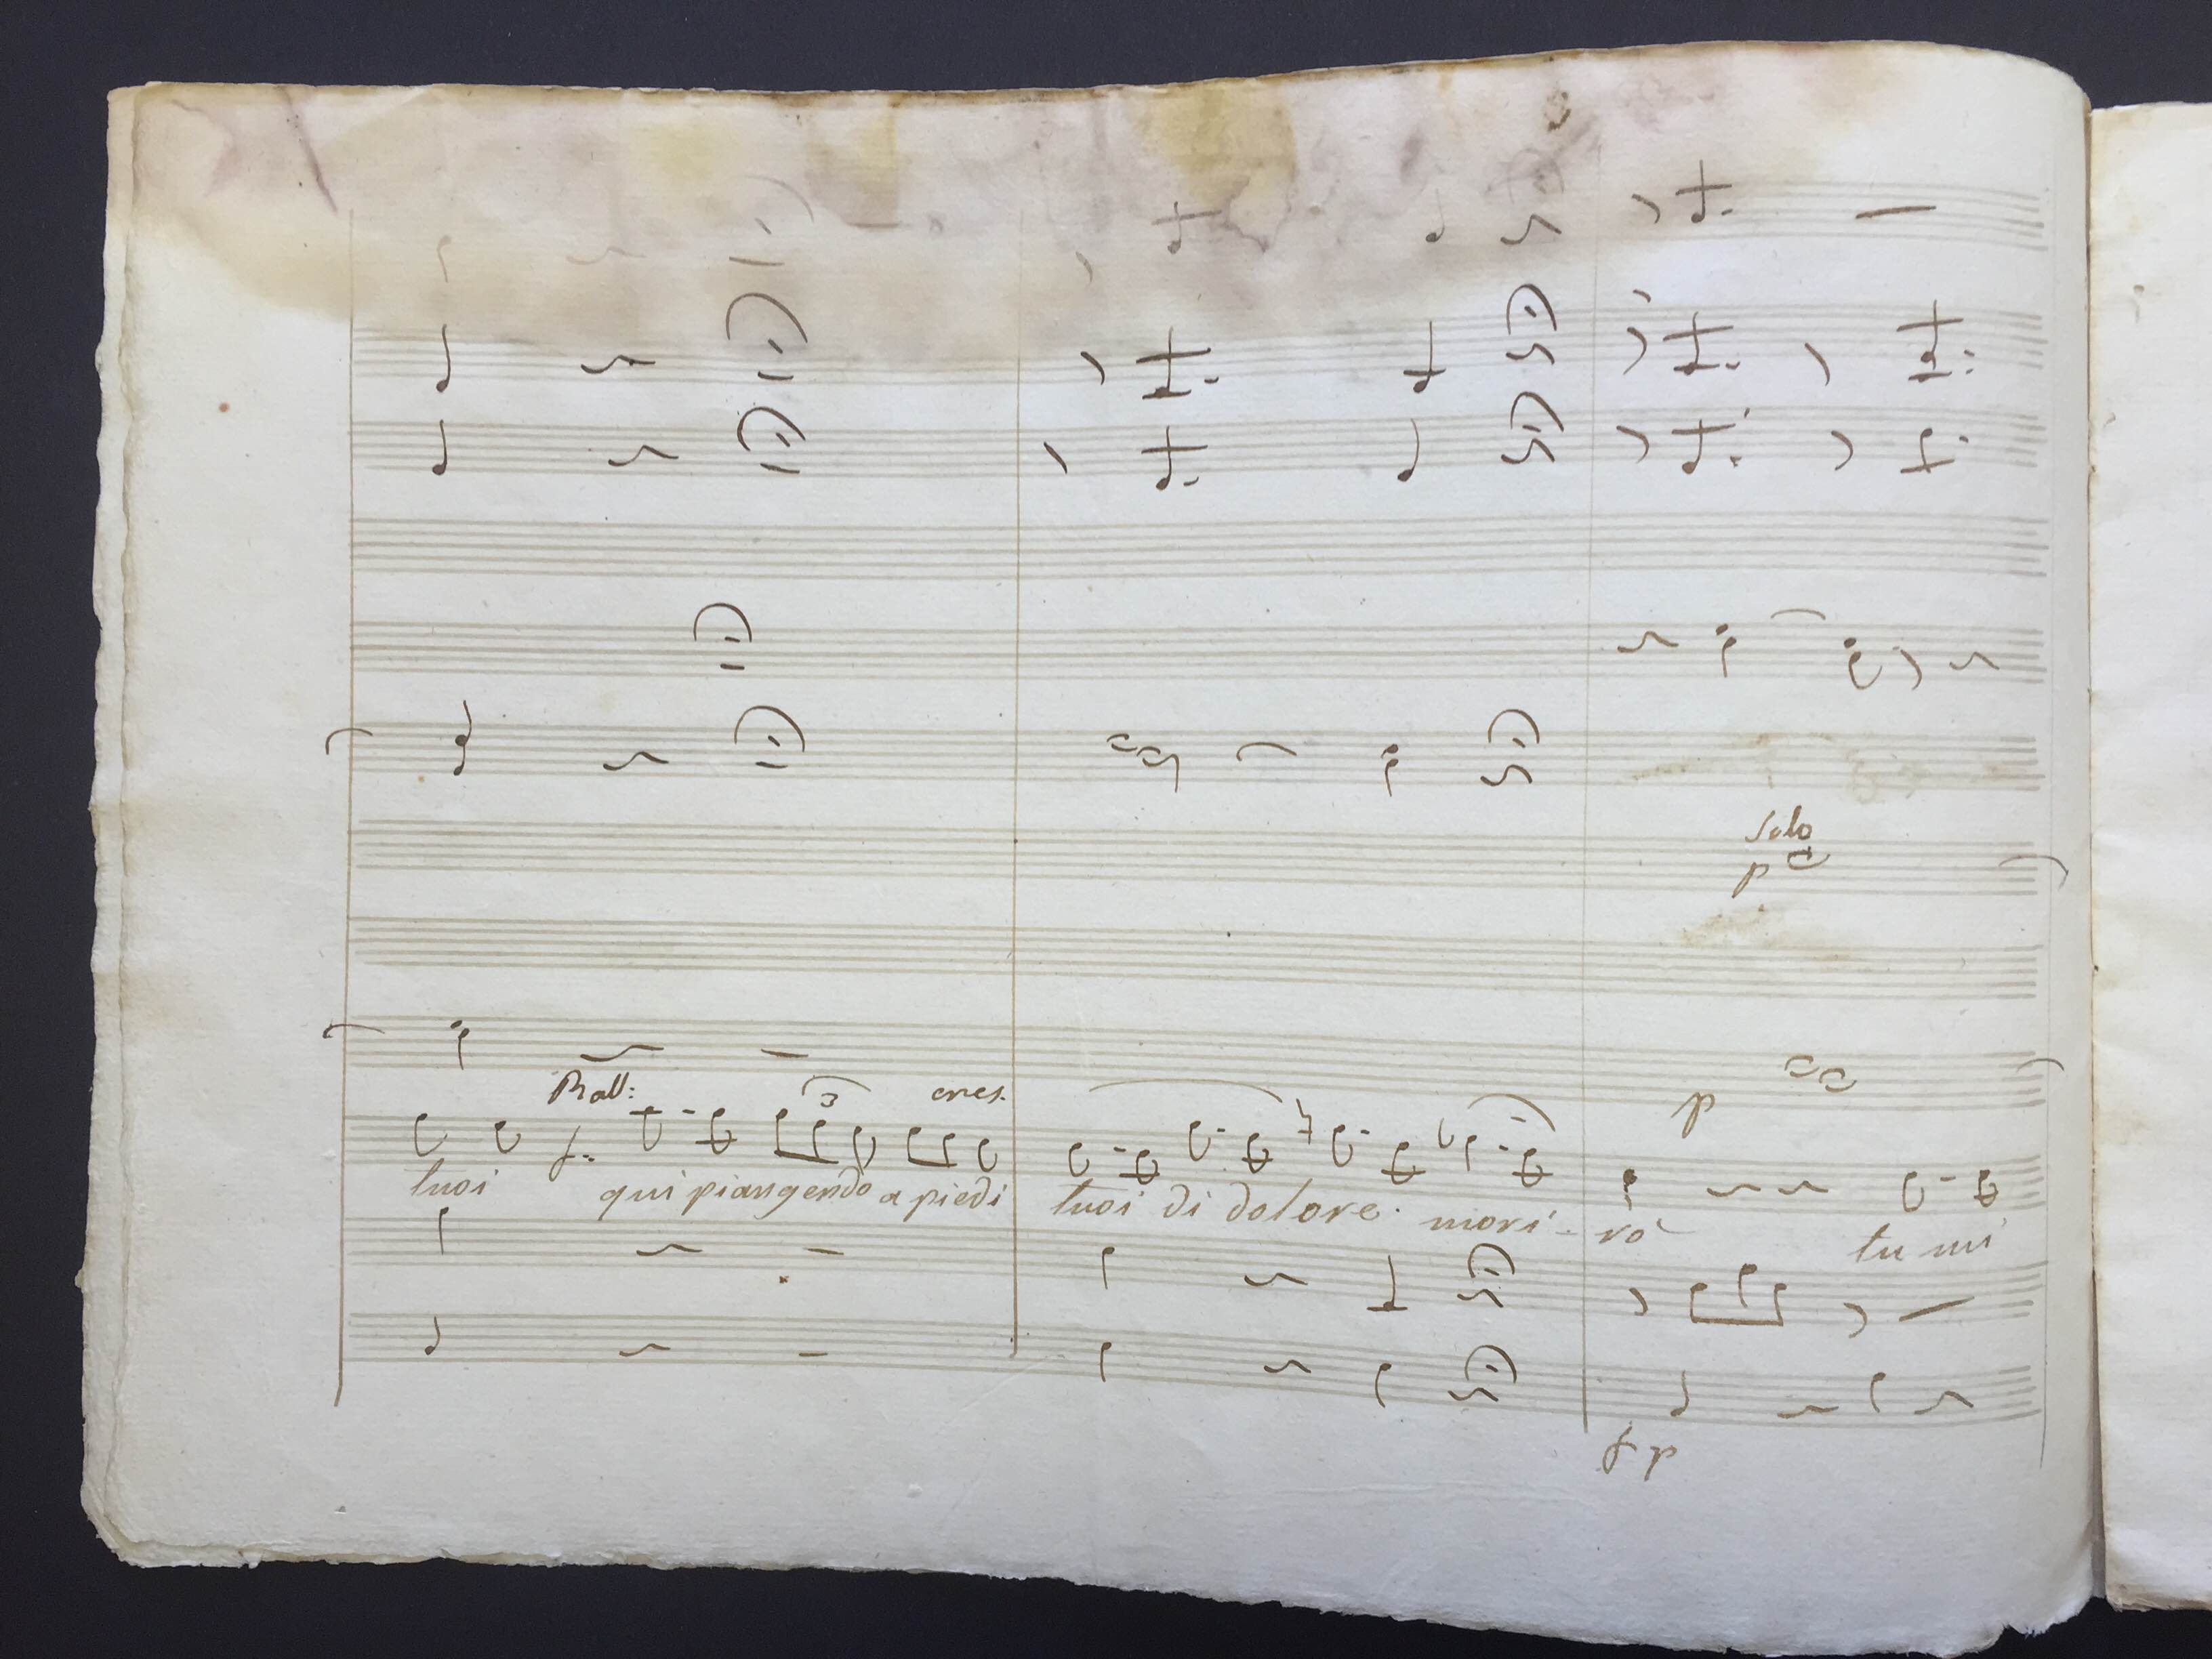 Solo
p
Rall: 3 cres.
p
tuoi qui piangendo a piedi tuoi di dolore mori - rò tu mi
fp